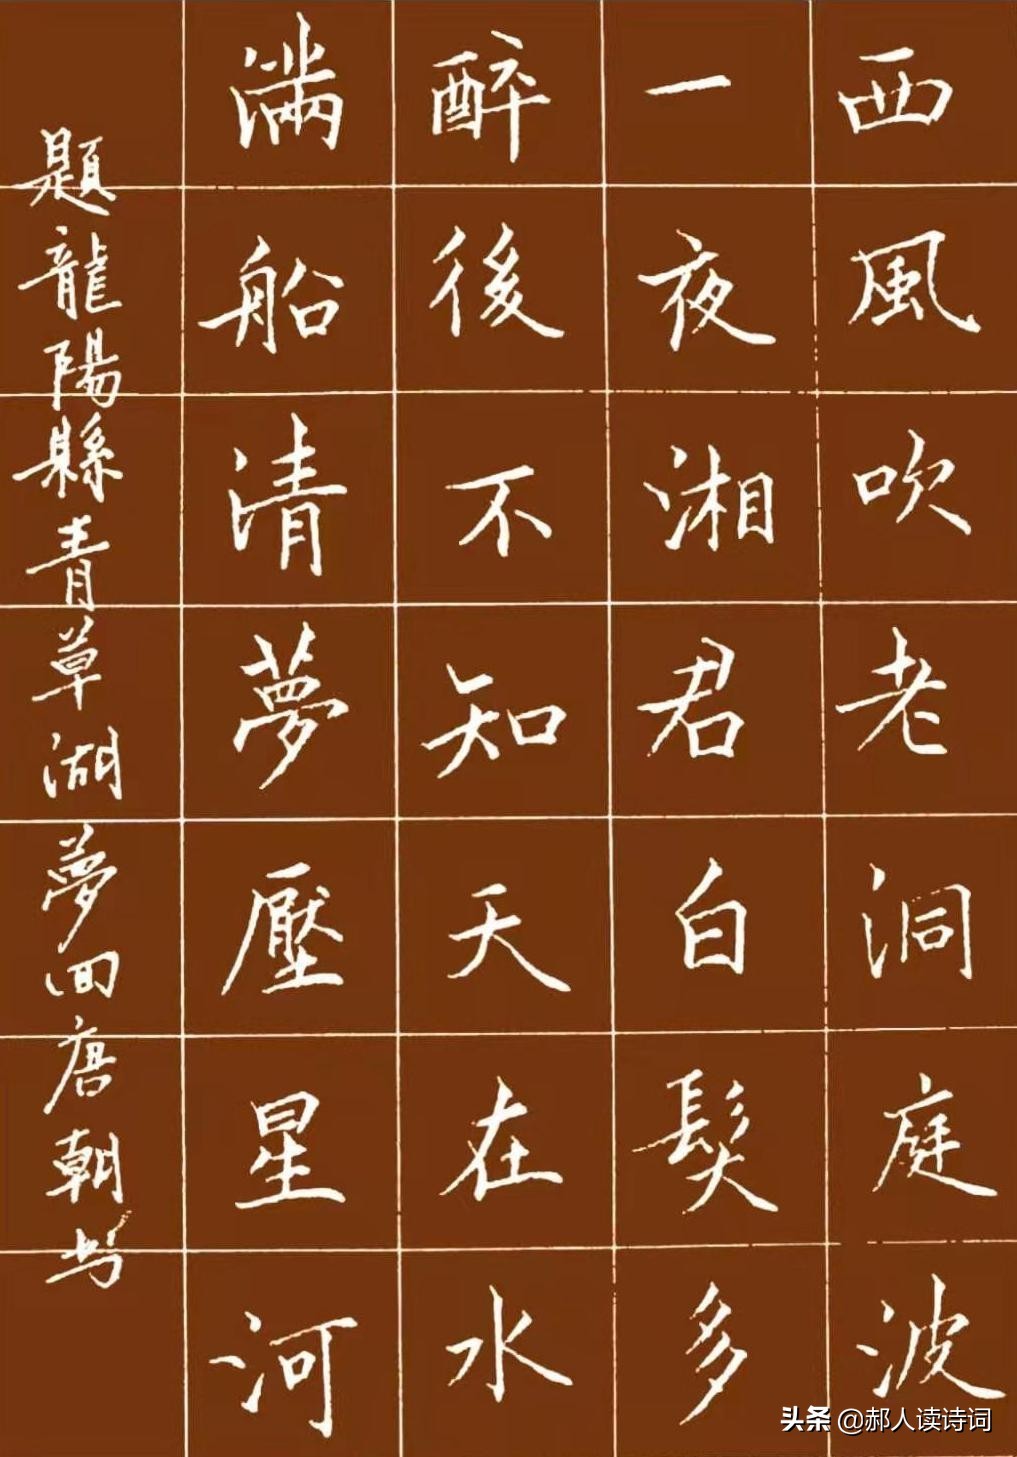 西風吹老洞庭波
一夜湘君白髮多
醉後不知天在水
滿船清夢壓星河
題龍陽縣青草湖夢回唐朝书
头条 @郝人读诗词